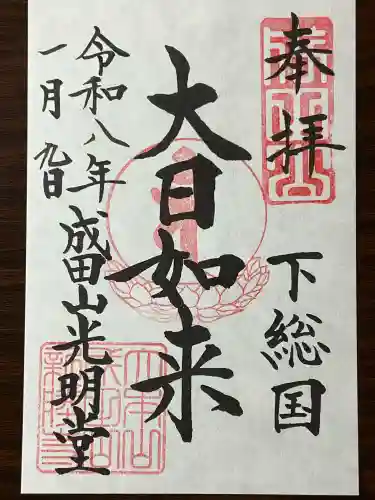 奉拝
下総国
大日如来
成田山光明堂
令和八年
一月九日